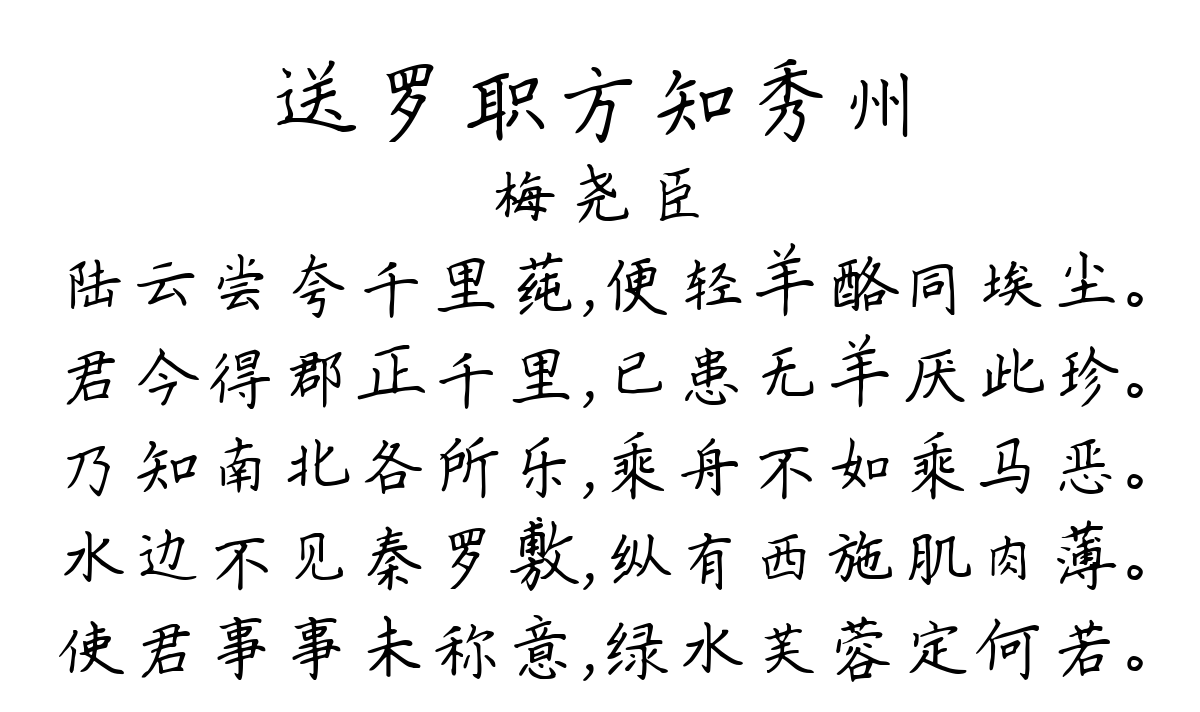 送罗职方知秀州
梅尧臣
陆云尝夸千里莼,便轻羊酪同埃尘。
君今得郡正千里,已患无羊厌此珍。
乃知南北各所乐,乘舟不如乘马恶。
水边不见秦罗敷,纵有西施肌肉薄。
使君事事未称意,绿水芙蓉定何若。